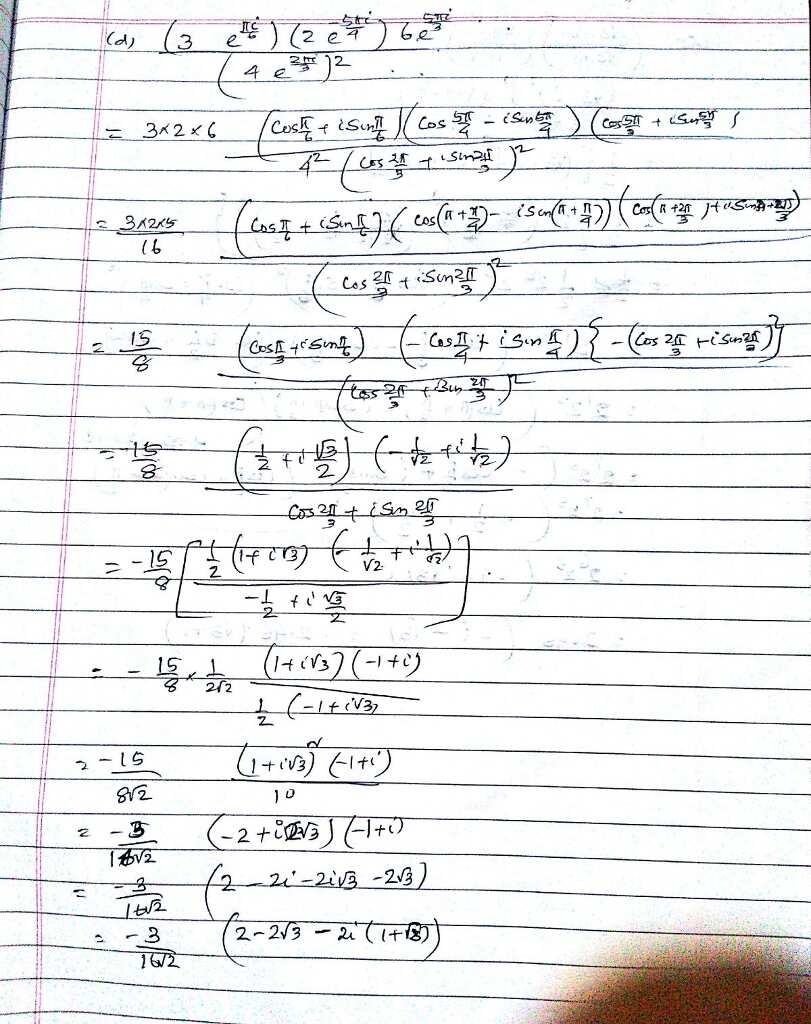 (d) (3 e^{πi/6}) (2 e^{-5πi/4}) 6 e^{5πi/3}
(4 e^{2πi/3})^2
= 3×2×6 (Cos π/6 + i Sin π/6) (Cos 5π/4 - i Sin 5π/4) (Cos 5π/3 + i Sin 5π/3)
4^2 (Cos 2π/3 + i Sin 2π/3)^2
= 3×2×5/16 (Cos π/6 + i Sin π/6) (Cos(π + π/4) - i Sin(π + π/4)) (Cos(π + 2π/3) + i Sin(π + 2π/3))
(Cos 2π/3 + i Sin 2π/3)^2
= 15/8 (Cos π/3 + i Sin π/6) (- Cos π/4 + i Sin π/4) {- (Cos 2π/3 + i Sin 2π/3)}
(Cos 2π/3 + i Sin 2π/3)^2
= -15/8 (1/2 + i √3/2) (-1/√2 + i 1/√2)
Cos 2π/3 + i Sin 2π/3
= -15/8 [1/2 (1 + i√3) (-1/√2 + i 1/√2)
-1/2 + i √3/2]
= - 15/8 × 1/2√2 (1 + i√3) (-1 + i)
1/2 (-1 + i√3)
= -15/8√2 (1 + i√3)^2 (-1 + i)
10
= -3/16√2 (-2 + i2√3) (-1 + i)
= -3/16√2 (2 - 2i - 2i√3 - 2√3)
= -3/16√2 (2 - 2√3 - 2i (1 + √3))